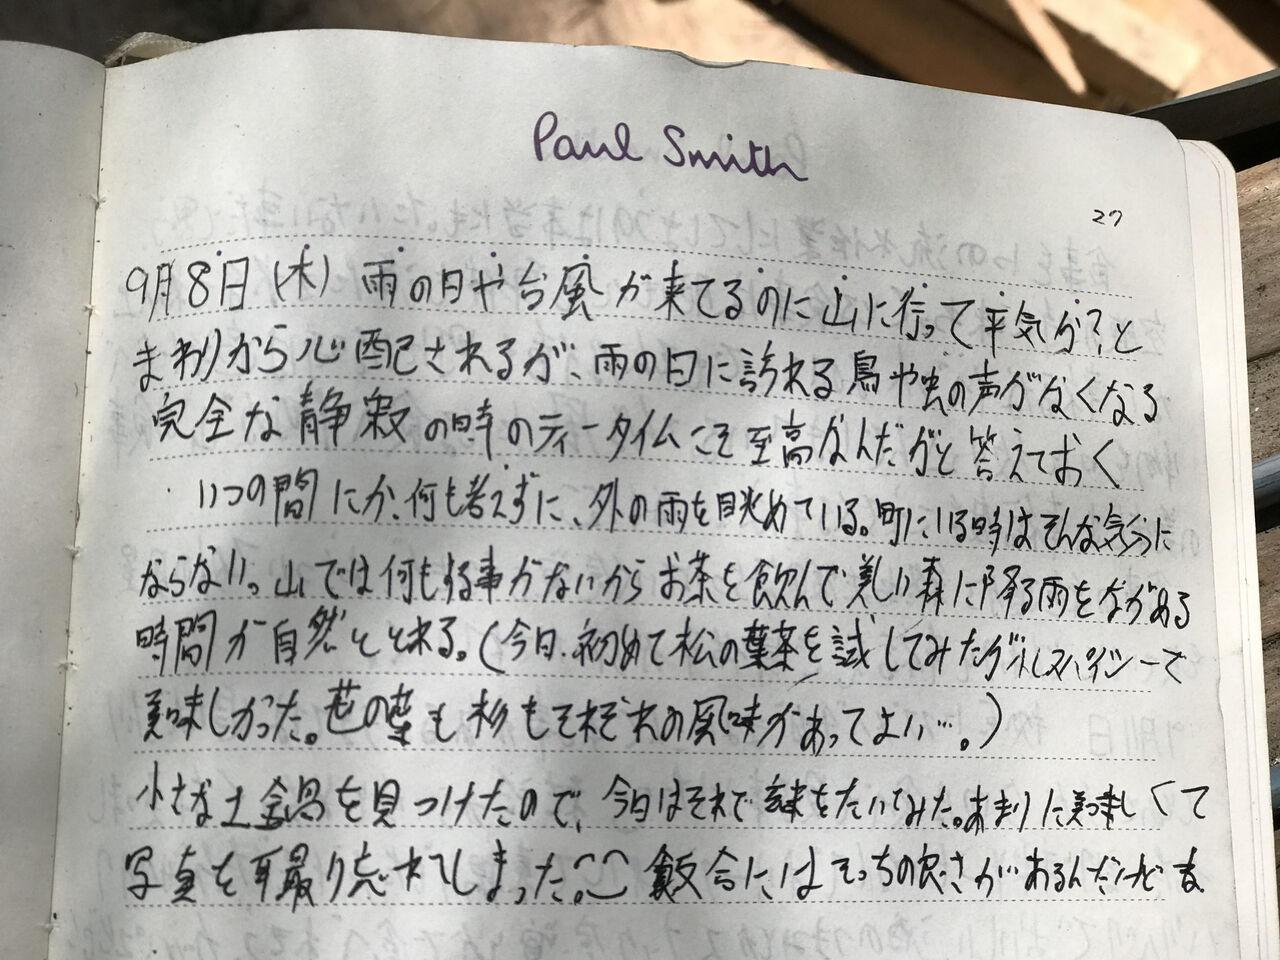 Paul Smith
27
9月8日(木) 雨の日や台風が来てるのに山に行って平気か?と
まわりから心配されるが、雨の日に訪れる鳥や虫の声がなくなる
完全な静寂の時のティータイムこそ至高なんだがと答えておく
いつの間にか、何も考えずに、外の雨を眺めている。町にいる時はそんな気分に
ならない。山では何もする事がないからお茶を飲んで美しい森に降る雨をながめる
時間が自然ととれる。(今日、初めて松の葉茶を試してみたが少しスパイシーで
美味しかった。笹の葉も杉もそれぞれの風味があってよい…。)
小さな土鍋を見つけたので、今日はそれで お米をたいてみた。あまりに美味しくて
写真を撮り忘れてしまった。飯合にはそっちの良さがあるんだけどま